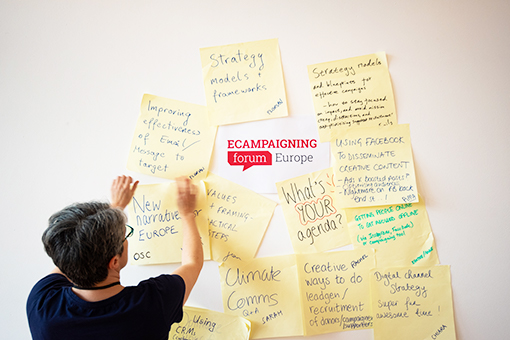 Strategy
models &
frameworks
Strategy models
and blueprints for
effective campaigns
- how to stay focused
Improving
effectiveness
of Email/
Message to
target
ECAMPAIGNING
forum Europe
USING FACEBOOK
TO DISSEMINATE
CREATIVE CONTENT
- Ads & Boosted Posts?
VALUES
& FRAMING -
TACTICAL
STEPS
WHAT'S
YOUR
agenda?
New
Narrative
EUROPE
OSC
GETTING PEOPLE ONLINE
TO GET INVOLVED OFFLINE
Climate
Comms
Q&A
SARAH
Creative
ways to do
leadgen/
recruitment
of donors/campaigners/
RACHEL
Digital channel
Strategy
Super fun
awesome time!
Using
CRMs